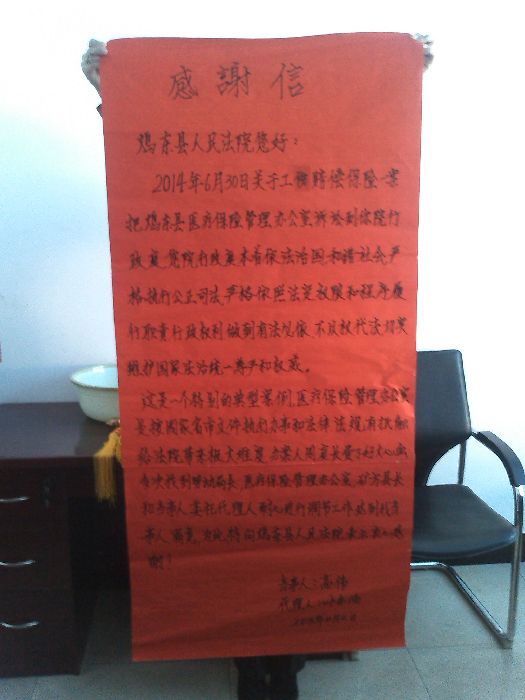 感謝信
鸡东县人民法院您好：
2014年6月30日关于工伤赔偿保险一案
把鸡东县医疗保险管理办公室诉讼到你院行
政庭，贵院行政庭本着依法治国和谐社会严
格执行公正司法严格依照法定权限和程序履
行职责行政权利做到有法必依，不以权代法切实
维护国家法治统一尊严和权威。
这是一个特别的典型案例，医疗保险管理办公室
是按国家省市文件执行办事和法律法规有抵触
给法院带来极大难度，办案人周庭长费了好大心血
多次找到劳动局长，医疗保险管理办公室，矿方县长
和当事人委托代理人耐心进行调节工作达到找当
事人满意，为此特向鸡东县人民法院表示衷心感
谢！
当事人：高伟
代理人：